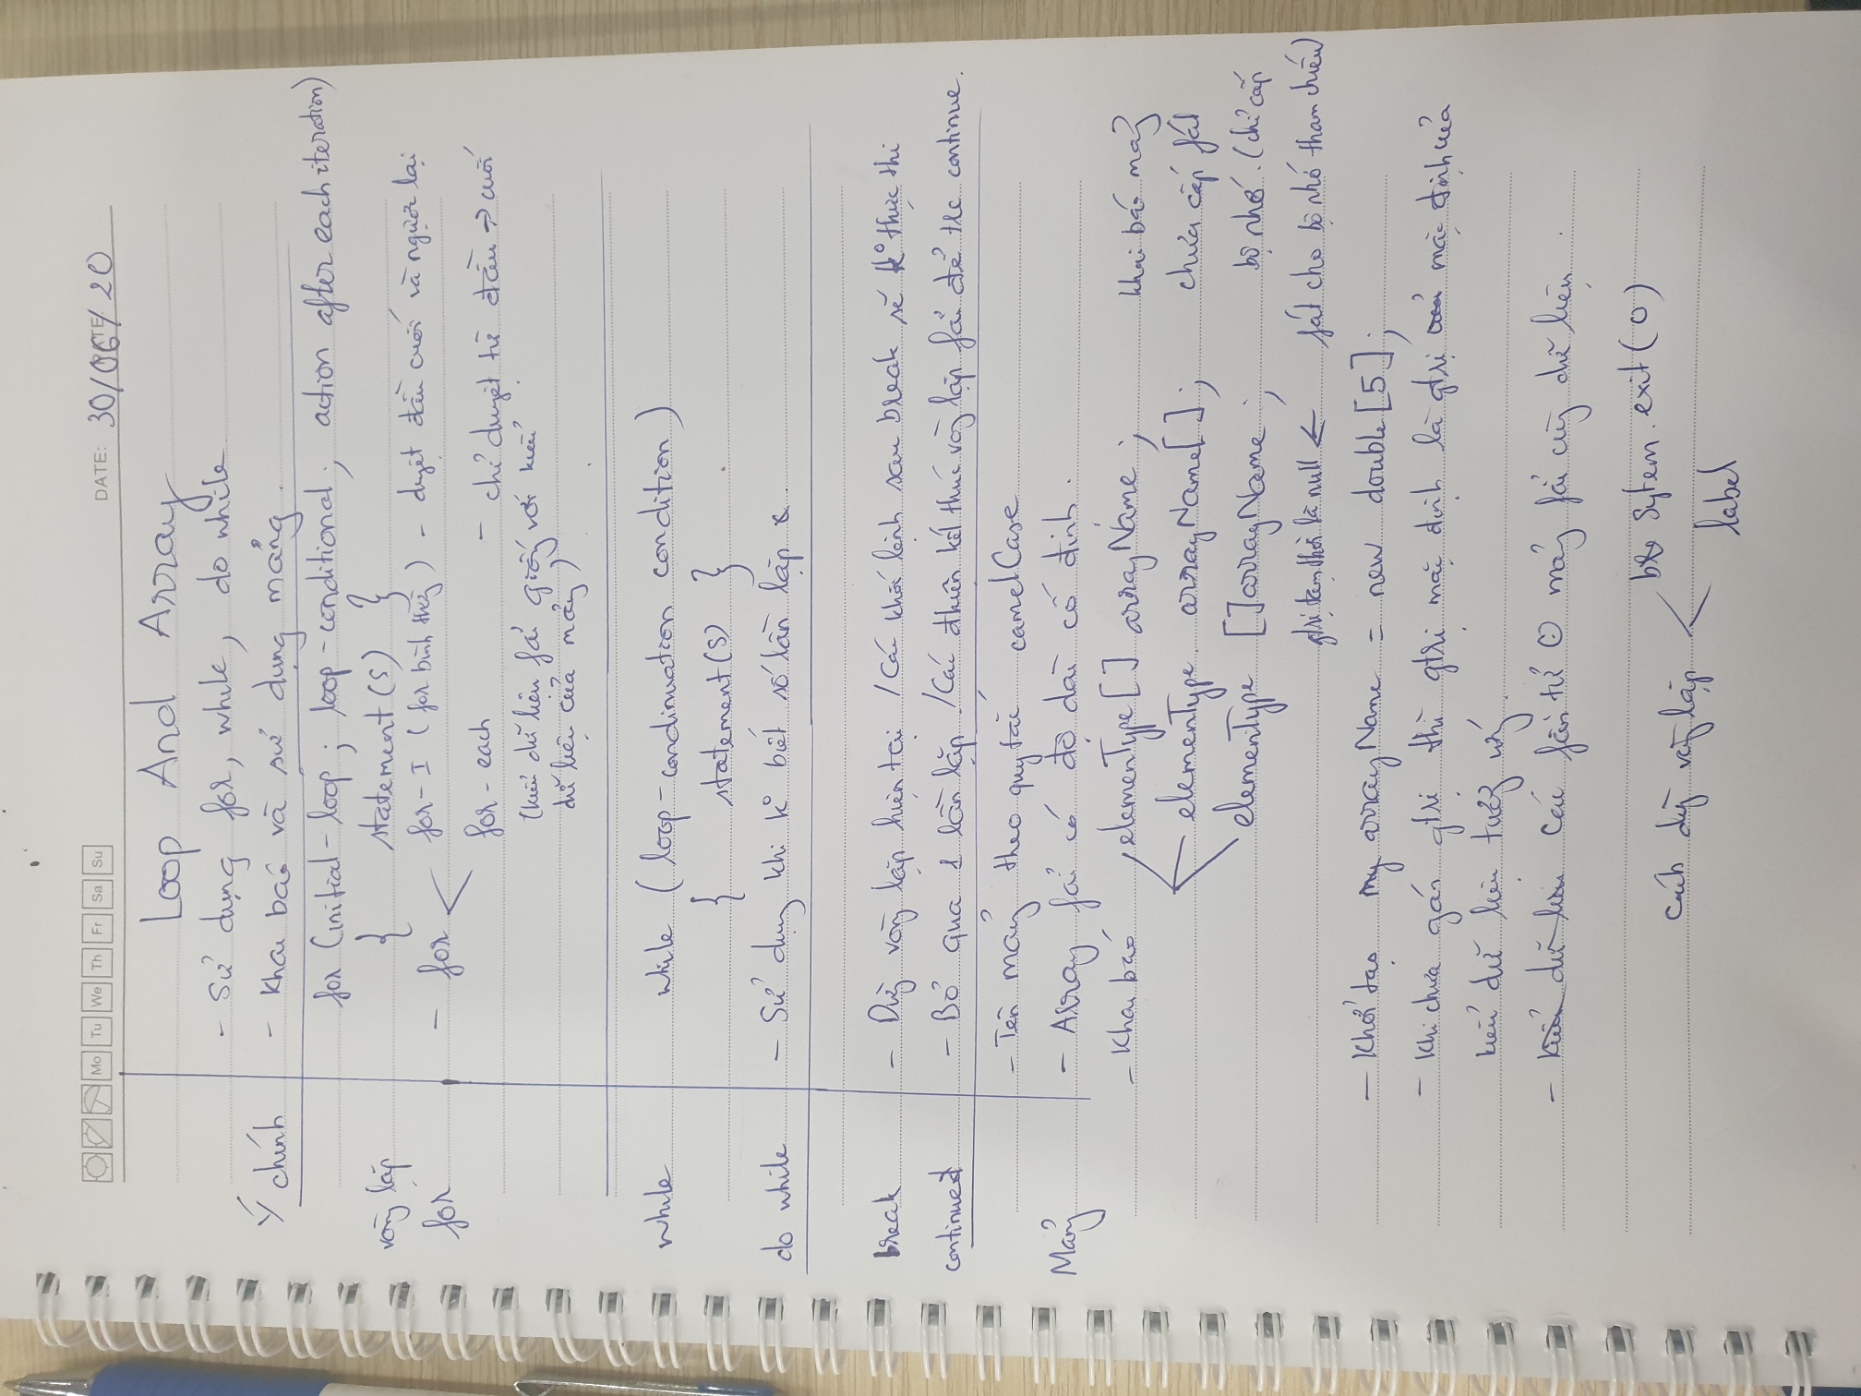 Mo Tu We Th Fr Sa Su
DATE: 30/06/20
Loop And Array
- Sử dụng for, while, do while
Ý chính
- Khai báo và sử dụng mảng.
for (initial-loop; loop-conditional; action after each iteration)
{ statement(s) }
vòng lặp
for
- for
for-I (for bình thg) - duyệt đầu cuối và ngược lại
for-each - chỉ duyệt từ đầu → cuối
(kiểu dữ liệu fải giống với kiểu
dữ liệu của mảng)
while
while (loop-condinuation condition)
{ statement(s) }
do while
- Sử dụng khi k° biết số lần lặp
break
- Dừng vòng lặp hiện tại / Các khối lệnh sau break sẽ k° thực thi
continued
- Bỏ qua 1 lần lặp / Các đkiện kết thúc vòng lặp fải để trc continue.
- Tên mảng theo quy tắc camelCase
Mảng
- Array fải có độ dài cố định.
- Khai báo
elemenType[] arrayName;
elemenType arrayName[];
elemenType []arrayName;
khai báo mảng
chưa cấp fát
bộ nhớ. (chỉ cấp
gtrị tạm thời là null ← fát cho bộ nhớ tham chiếu)
- Khởi tạo arrayName = new double[5];
- Khi chưa gán gtrị thì gtrị mặc định là gtrị mặc định của
kiểu dữ liệu tương ứng.
- các fần tử mảng fải cùng dữ liệu
cách dừng vòng lặp
Sytem.exit(0)
label